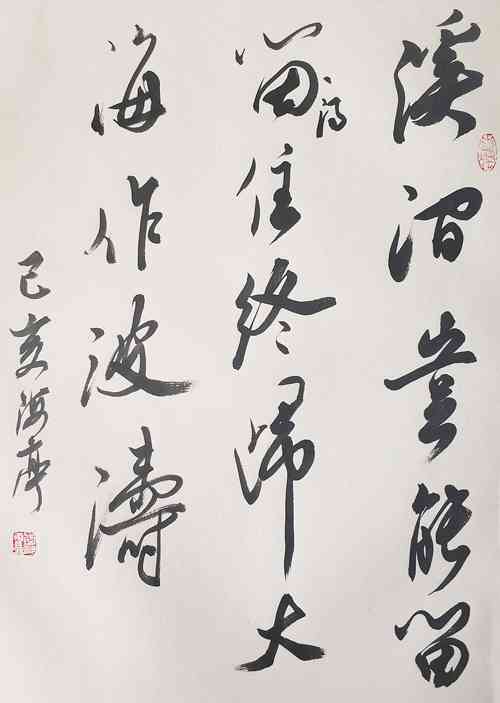 溪澗豈能留
留得住終歸大
海作波濤
己亥海亭